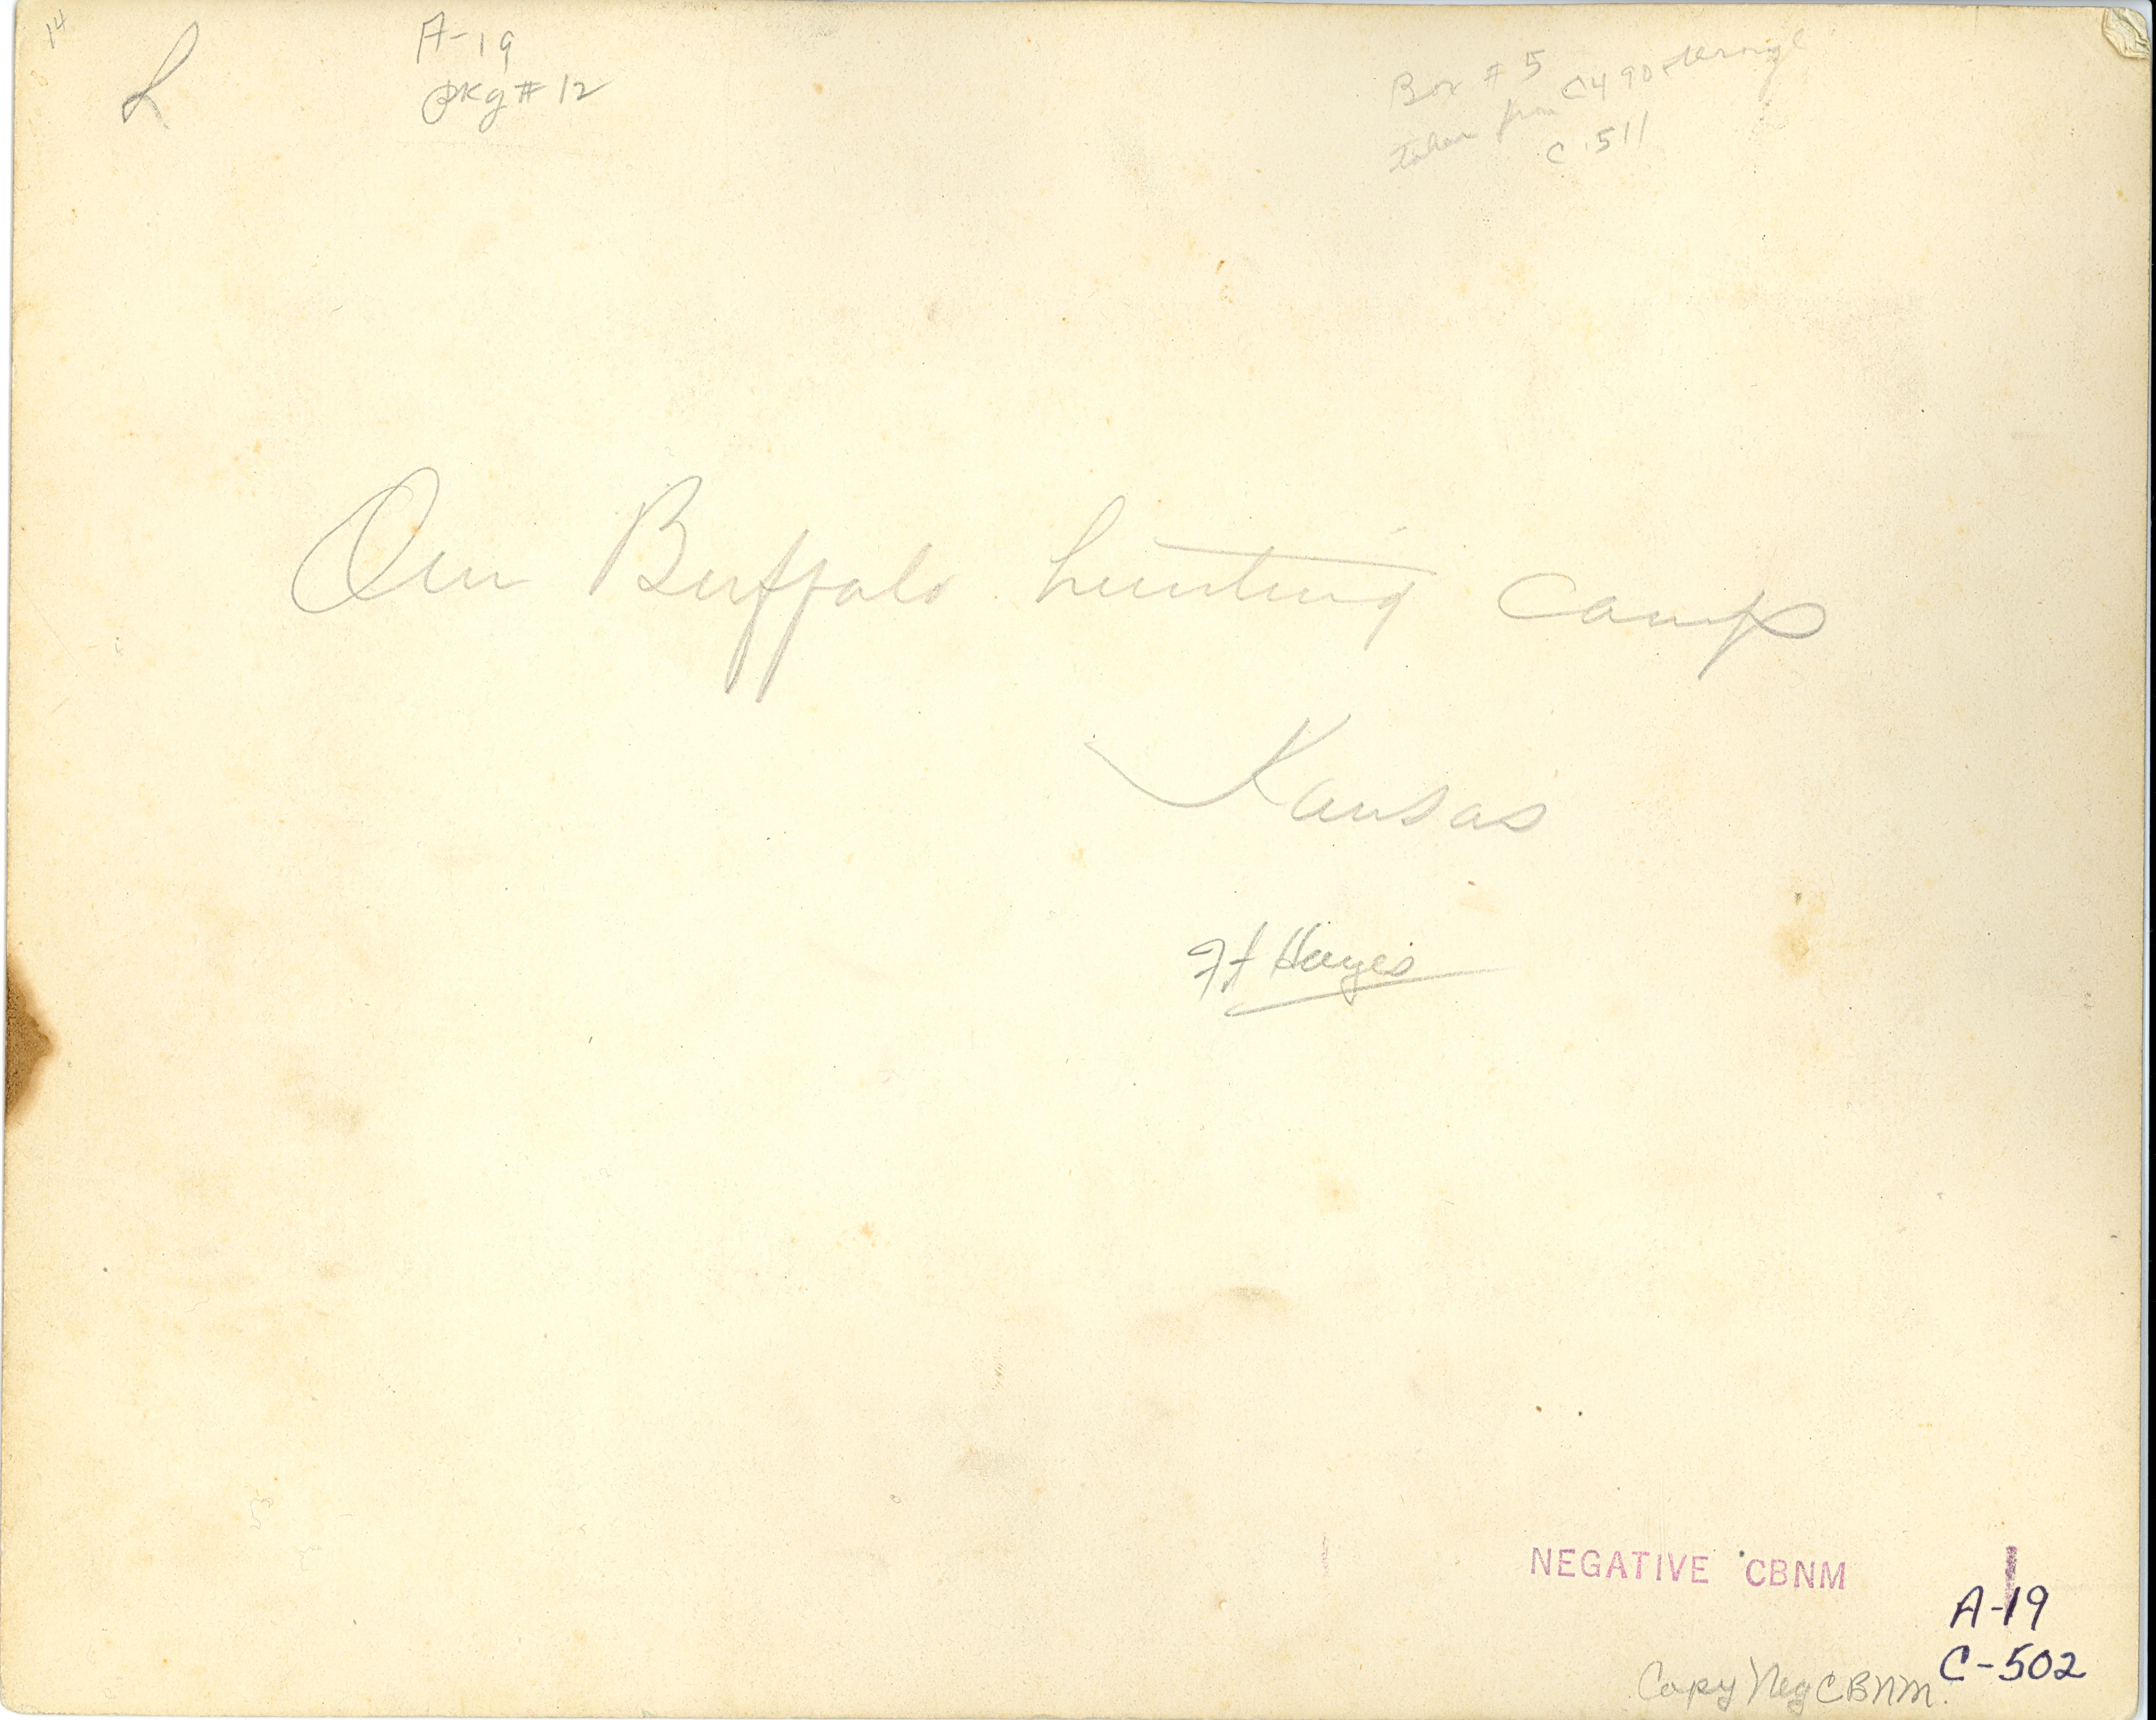 14
L
A-19
pkg # 12
Box # 5
taken from C490 through
C.511
Our Buffalo hunting camp
Kansas
Ft Hayes
NEGATIVE CBNM
A-19
C-502
Copy Neg CBNM.